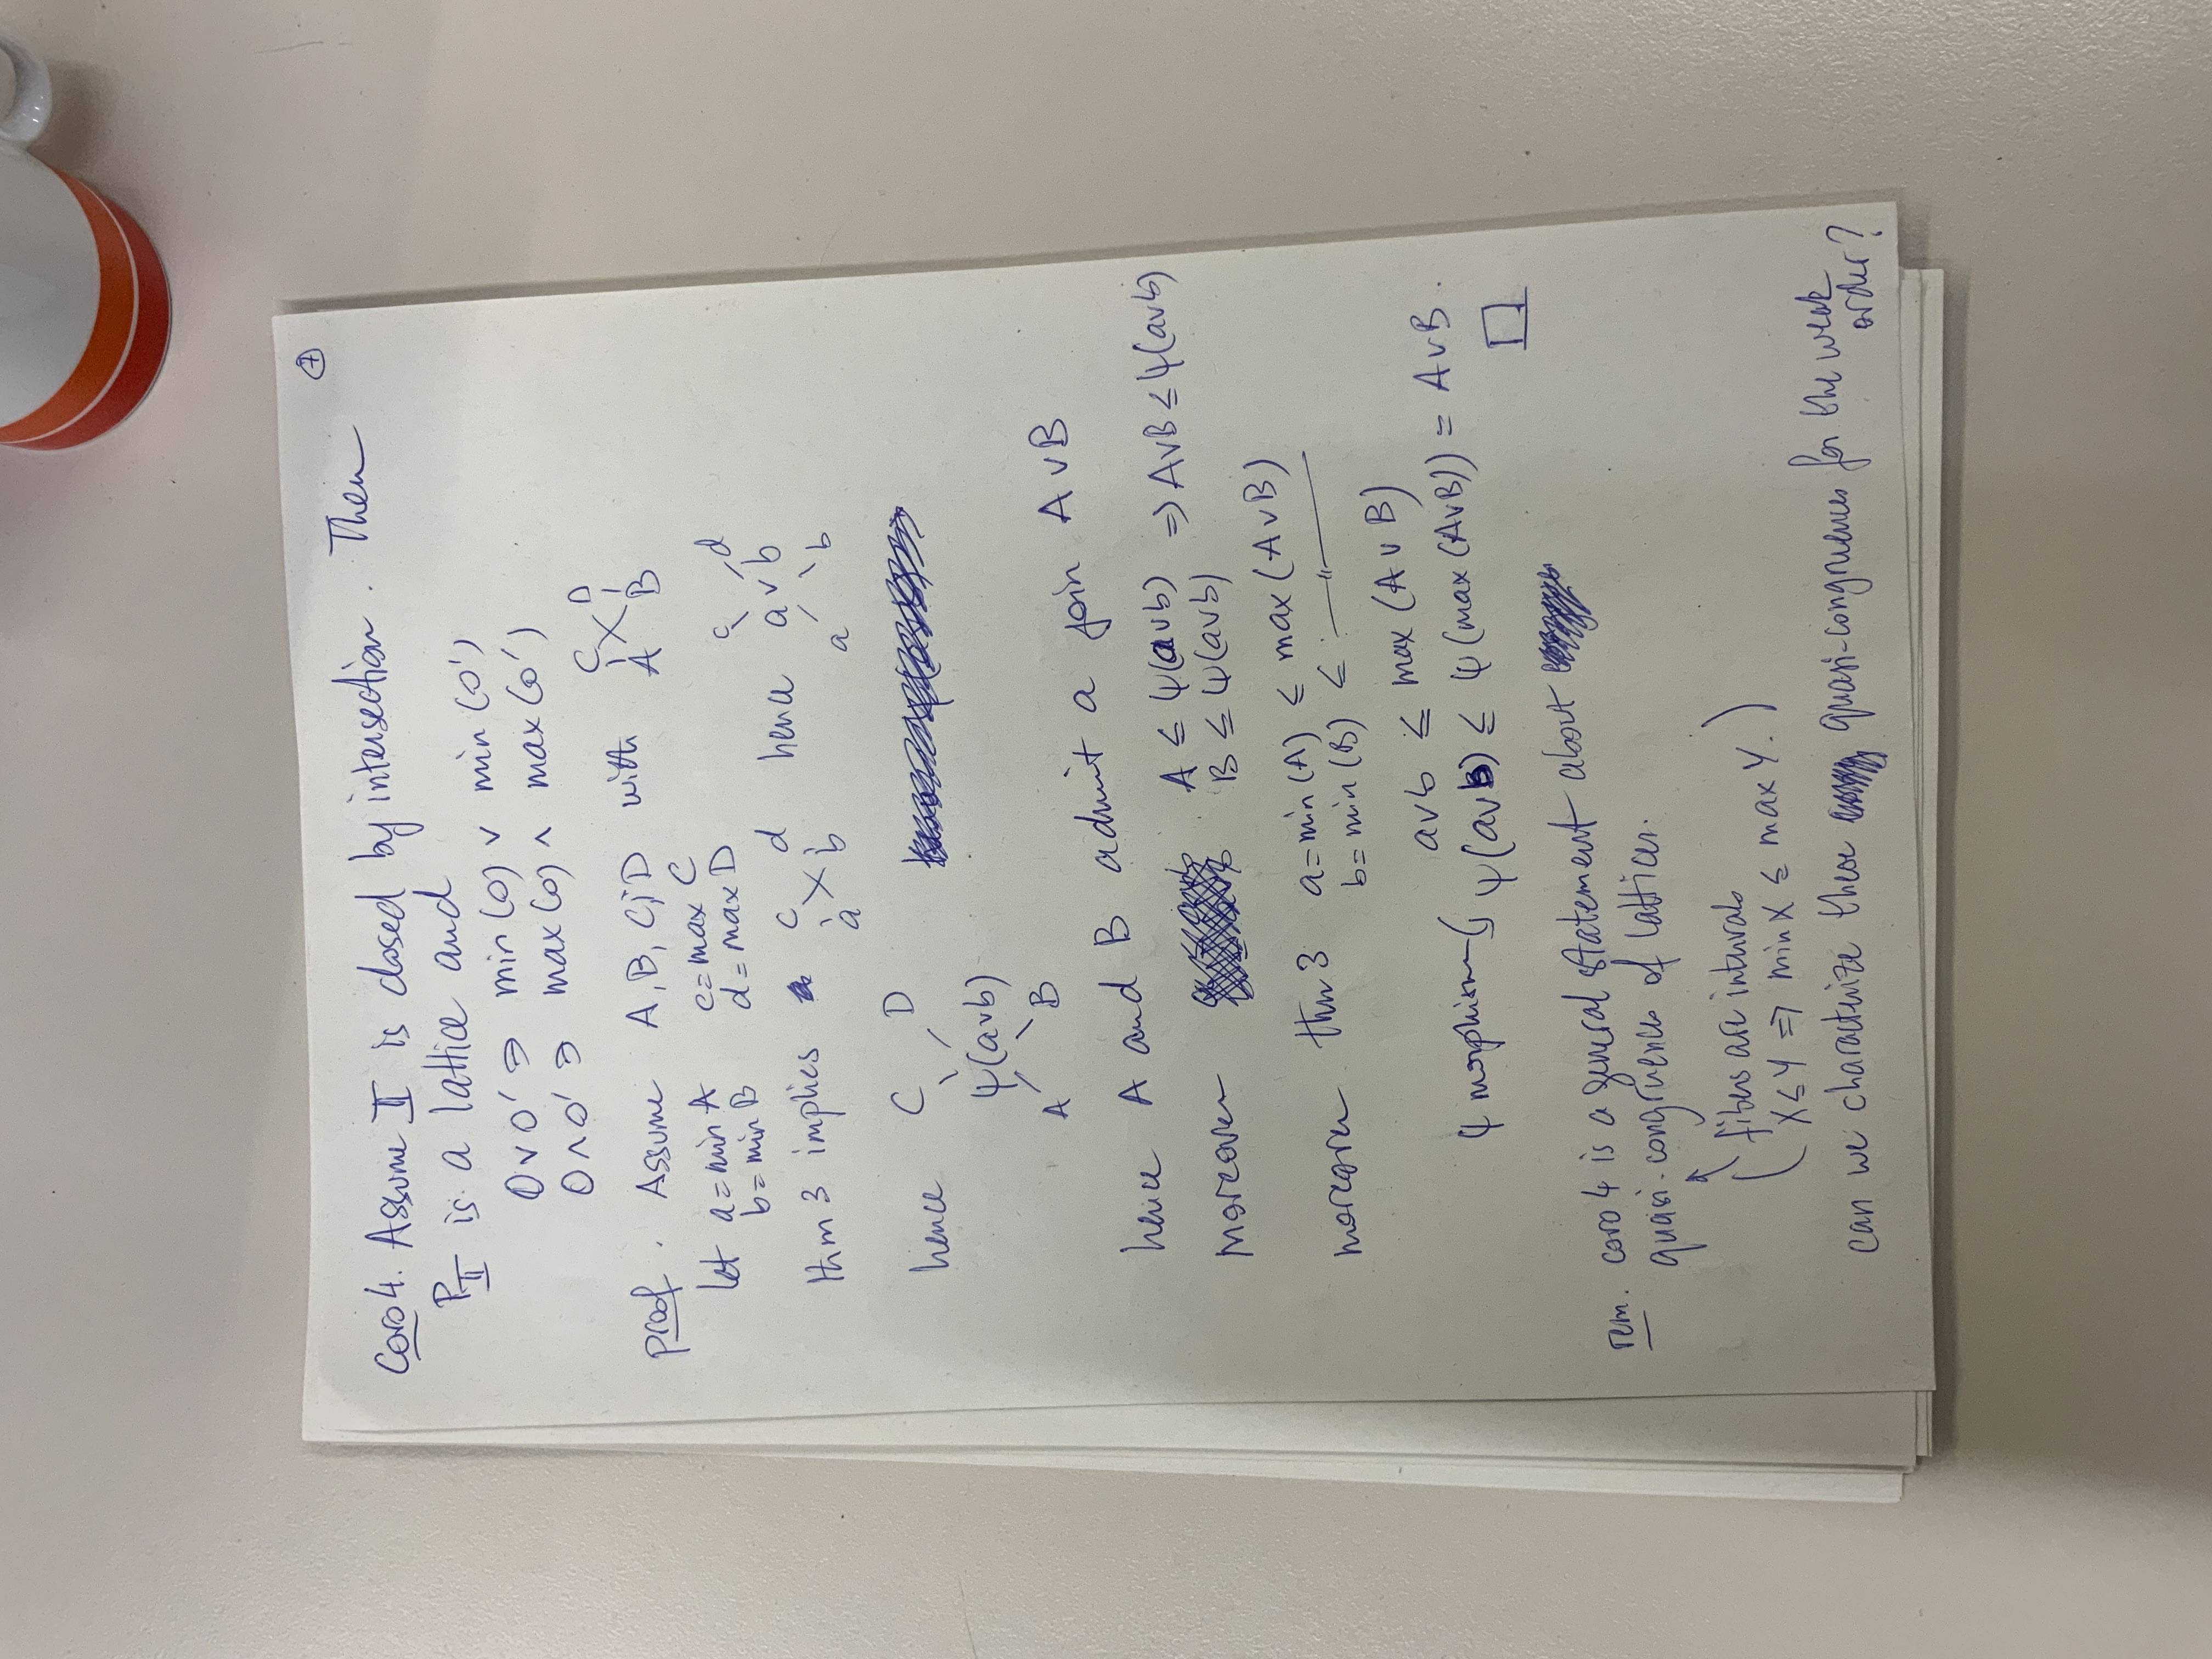 7
Coro 4. Assume II is closed by intersection. Then
P_II is a lattice and
O ∨ O' ∋ min(O) ∨ min(O')
O ∧ O' ∋ max(O) ∧ max(O')
proof. Assume A, B, C, D with C D
A B
let a = min A c = max C
b = min B d = max D
thm 3 implies c d hence c d
a b a∨b
a b
hence C D
ψ(a∨b)
A B
hence A and B admit a join A∨B
moreover A ≤ ψ(a∨b) ⇒ A∨B ≤ ψ(a∨b)
B ≤ ψ(a∨b)
moreover thm 3 a = min(A) ≤ max(A∨B)
b = min(B) ≤ —"—
a∨b ≤ max(A∨B)
ψ morphism ψ(a∨b) ≤ ψ(max(A∨B)) = A∨B.
□
rem. coro 4 is a general statement about
quasi-congruences of lattices.
(fibers are intervals
X ≤ Y ⇒ min X ≤ max Y.)
can we characterize these quasi-congruences for the weak
order?